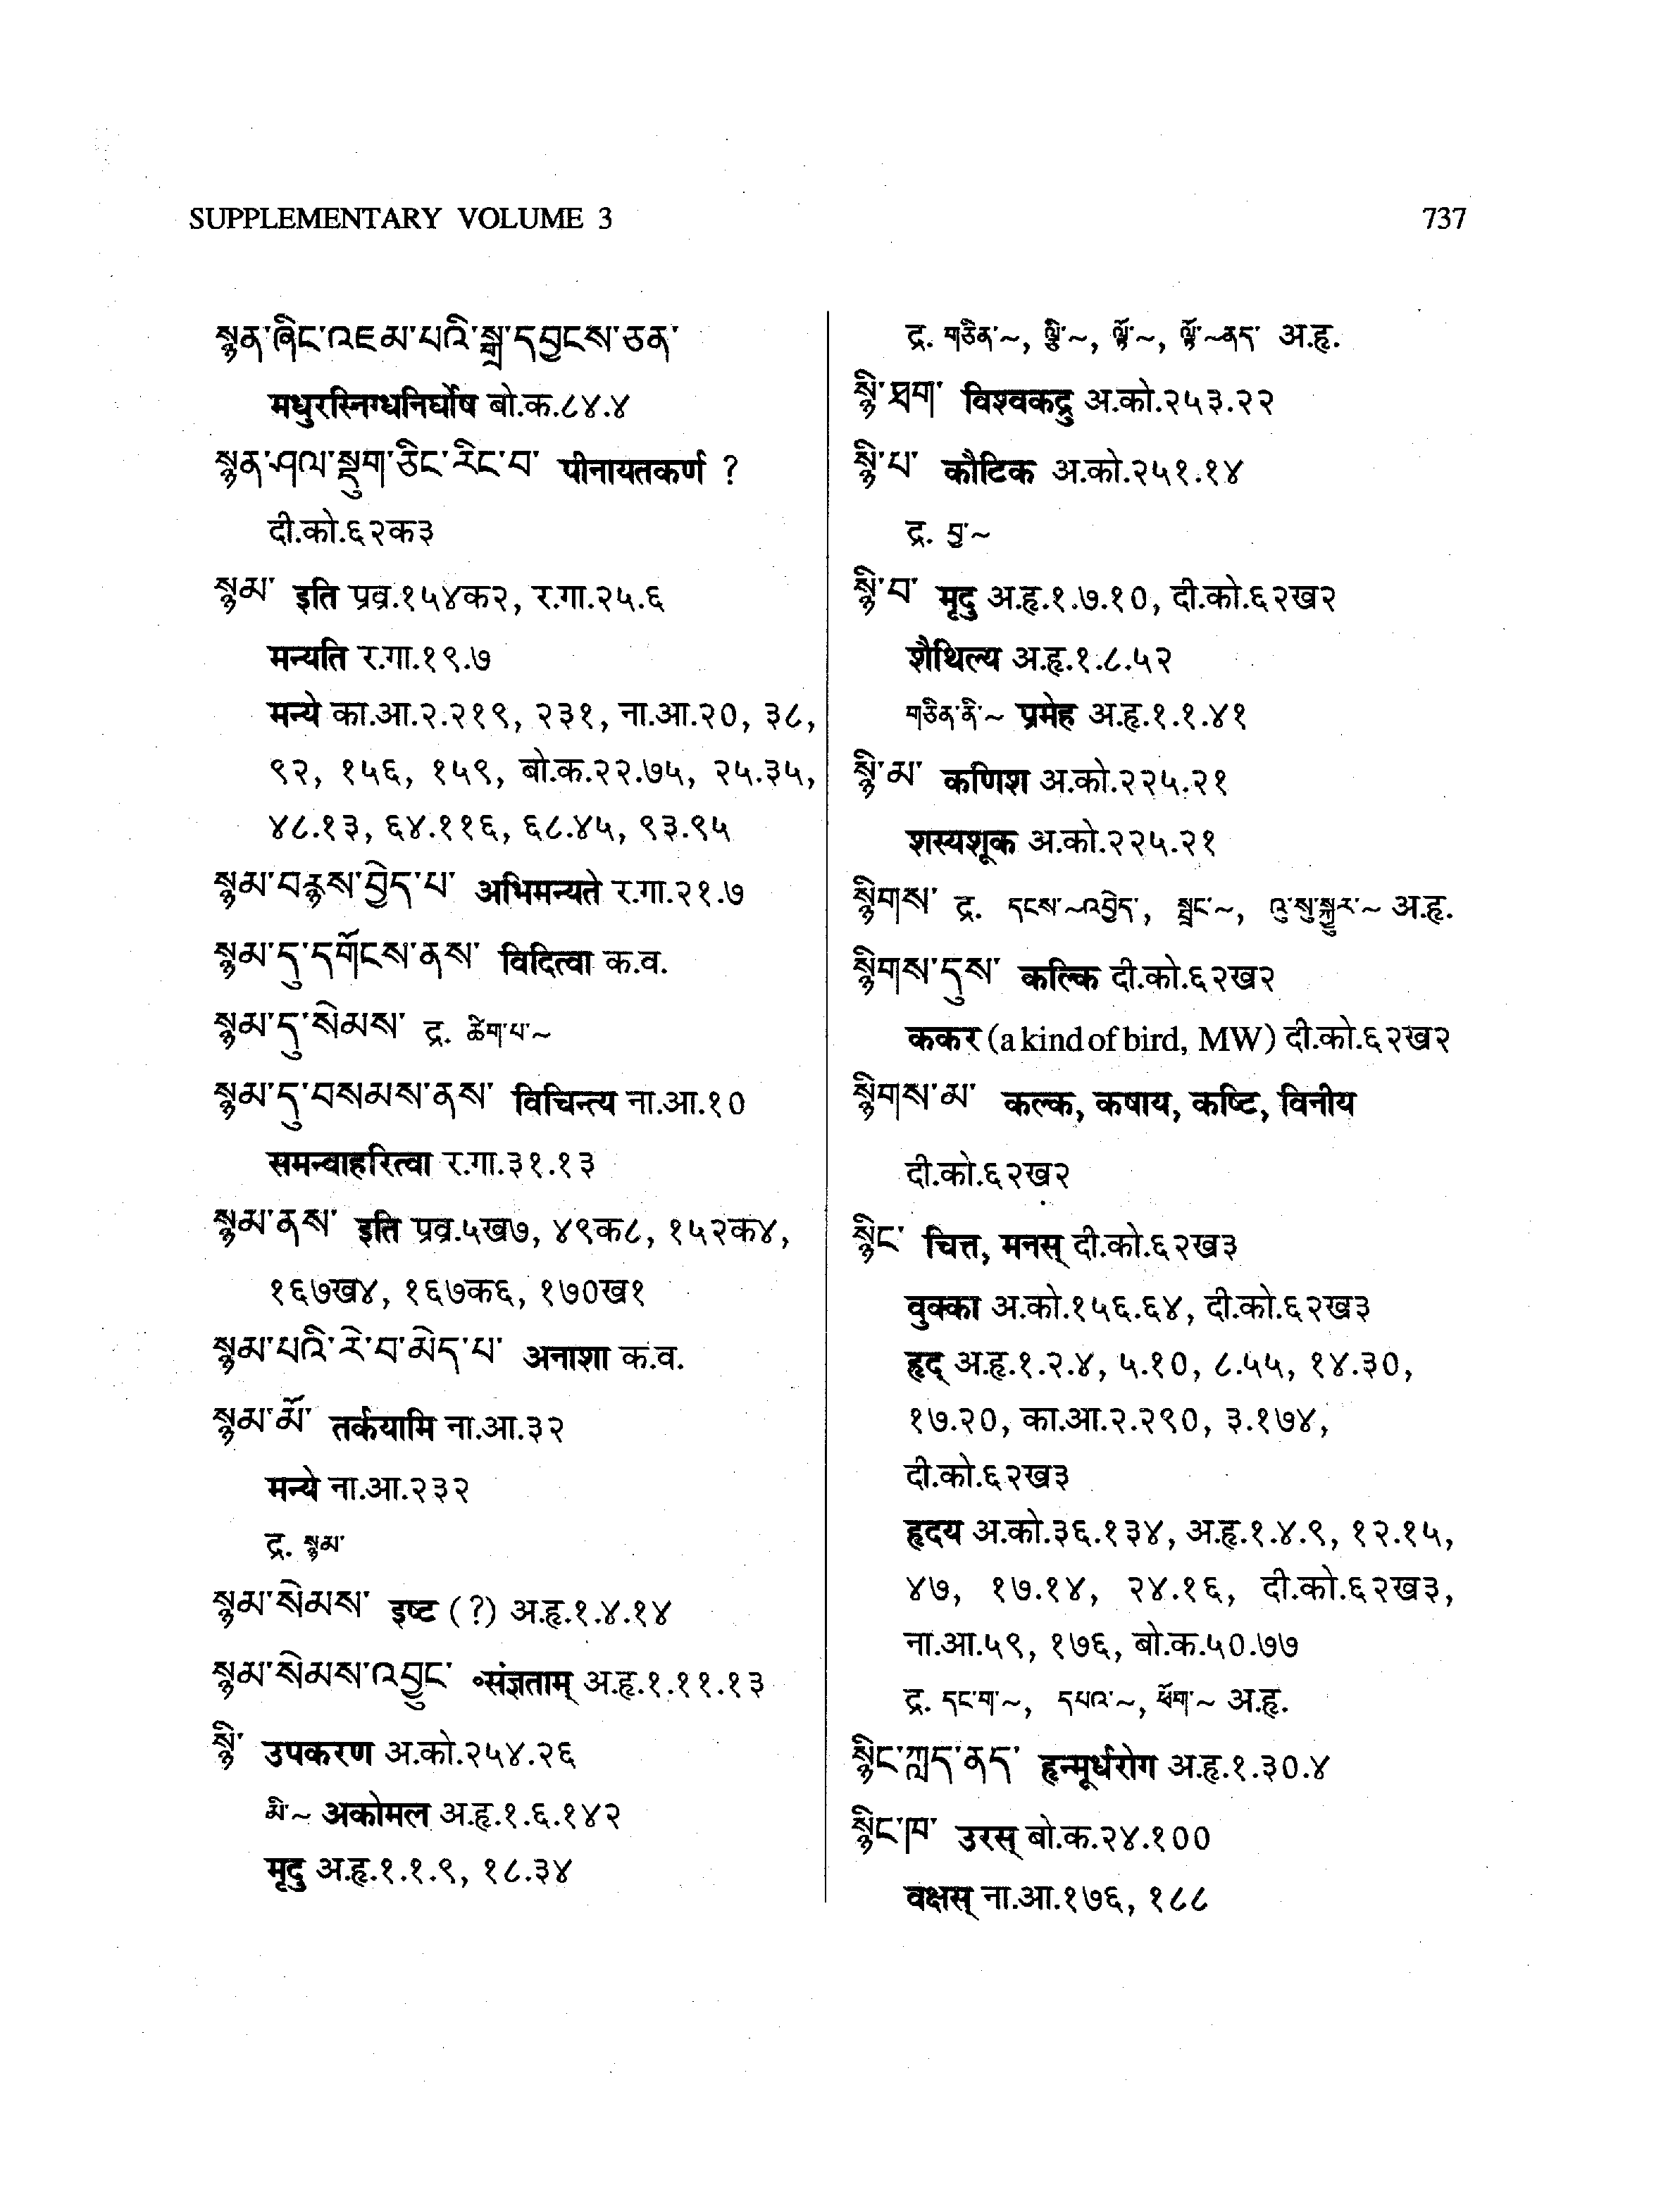 SUPPLEMENTARY VOLUME 3
737
སྙན་ཞིང་འཇམ་པའི་སྒྲ་དབྱངས་ཅན་
मधुरस्निग्धनिर्घोष बो.क.८४.४
སྙན་ཤལ་སྡུག་ཅིང་རིང་བ་ पीनायतकर्ण ?
दी.को.६२क३
སྙམ་ इति प्रव्र.१५४क२, र.गा.२५.६
मन्यति र.गा.१९.७
मन्ये का.आ.२.२१९, २३१, ना.आ.२०, ३८,
९२, १५६, १५९, बो.क.२२.७५, २५.३५,
४८.१३, ६४.११६, ६८.४५, ९३.९५
སྙམ་བརྙས་བྱེད་པ་ अभिमन्यते र.गा.२१.७
སྙམ་དུ་དགོངས་ནས་ विदित्वा क.व.
སྙམ་དུ་སེམས་ द्र. ཚེག་པ་~
སྙམ་དུ་བསམས་ནས་ विचिन्त्य ना.आ.१०
समन्वाहरित्वा र.गा.३१.१३
སྙམ་ནས་ इति प्रव्र.५ख७, ४९क८, १५२क४,
१६७ख४, १६७क६, १७०ख१
སྙམ་པའི་རེ་བ་མེད་པ་ अनाशा क.व.
སྙམ་མོ་ तर्कयामि ना.आ.३२
मन्ये ना.आ.२३२
द्र. སྙམ་
སྙམ་སེམས་ इष्ट (?) अ.हृ.१.४.१४
སྙམ་སེམས་འབྱུང་ ॰संज्ञताम् अ.हृ.१.११.१३
སྙི་ उपकरण अ.को.२५४.२६
མི་~ अकोमल अ.हृ.१.६.१४२
मृदु अ.हृ.१.१.९, १८.३४
द्र. གཅིན་~, ལྕི་~, ལྟོ་~, ལྟོ་~ནད་ अ.हृ.
སྙི་ཐག་ विश्वकद्रु अ.को.२५३.२२
སྙི་པ་ कौटिक अ.को.२५१.१४
द्र. བྱ་~
སྙི་བ་ मृदु अ.हृ.१.७.१०, दी.को.६२ख२
शैथिल्य अ.हृ.१.८.५२
གཅིན་ནི་~ प्रमेह अ.हृ.१.१.४१
སྙི་མ་ कणिश अ.को.२२५.२१
शस्यशूक अ.को.२२५.२१
སྙིགས་ द्र. དངས་~འབྱེད་, སྦྲང་~, འུ་སུ་སྐྱུར་~ अ.हृ.
སྙིགས་དུས་ कल्कि दी.को.६२ख२
ककर (a kind of bird, MW) दी.को.६२ख२
སྙིགས་མ་ कल्क, कषाय, कष्टि, विनीय
दी.को.६२ख२
སྙིང་ चित्त, मनस् दी.को.६२ख३
वुक्का अ.को.१५६.६४, दी.को.६२ख३
हृद् अ.हृ.१.२.४, ५.१०, ८.५५, १४.३०,
१७.२०, का.आ.२.२९०, ३.१७४,
दी.को.६२ख३
हृदय अ.को.३६.१३४, अ.हृ.१.४.९, १२.१५,
४७, १७.१४, २४.१६, दी.को.६२ख३,
ना.आ.५९, १७६, बो.क.५०.७७
द्र. དང་ག་~, དཔའ་~, ཕོག་~ अ.हृ.
སྙིང་ཀླད་ནད་ हृन्मूर्धरोग अ.हृ.१.३०.४
སྙིང་ཁ་ उरस् बो.क.२४.१००
वक्षस् ना.आ.१७६, १८८